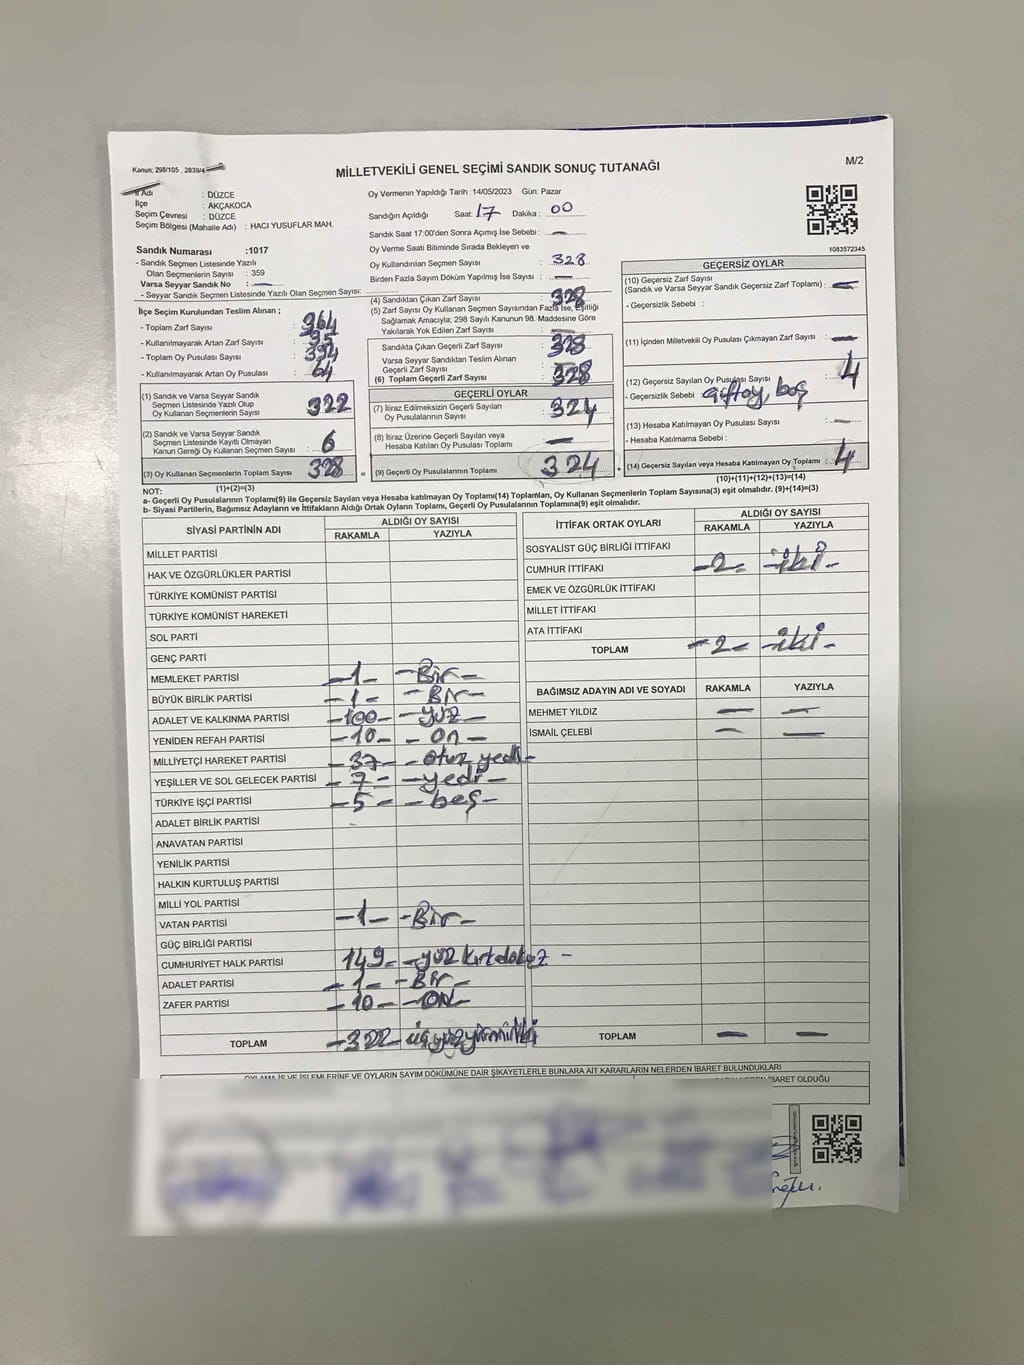 Kanun; 298/105 , 2839/4
MİLLETVEKİLİ GENEL SEÇİMİ SANDIK SONUÇ TUTANAĞI
M/2
İl Adı : DÜZCE
İlçe : AKÇAKOCA
Seçim Çevresi : DÜZCE
Seçim Bölgesi (Mahalle Adı) : HACI YUSUFLAR MAH.
Sandık Numarası :1017
- Sandık Seçmen Listesinde Yazılı
Olan Seçmenlerin Sayısı : 359
Varsa Seyyar Sandık No : —
- Seyyar Sandık Seçmen Listesinde Yazılı Olan Seçmen Sayısı:
İlçe Seçim Kurulundan Teslim Alınan ;
- Toplam Zarf Sayısı : 364
- Kullanılmayarak Artan Zarf Sayısı :
- Toplam Oy Pusulası Sayısı :
- Kullanılmayarak Artan Oy Pusulası : 64
(1) Sandık ve Varsa Seyyar Sandık
Seçmen Listesinde Yazılı Olup
Oy Kullanan Seçmenlerin Sayısı : 322
(2) Sandık ve Varsa Seyyar Sandık
Seçmen Listesinde Kayıtlı Olmayan
Kanun Gereği Oy Kullanan Seçmen Sayısı : 6
(3) Oy Kullanan Seçmenlerin Toplam Sayısı : 328
(1)+(2)=(3)
Oy Vermenin Yapıldığı Tarih :14/05/2023 Gün: Pazar
Sandığın Açıldığı Saat: 17 Dakika : 00
Sandık Saat 17:00'den Sonra Açımış İse Sebebi : —
Oy Verme Saati Bitiminde Sırada Bekleyen ve
Oy Kullandırılan Seçmen Sayısı : 328
Birden Fazla Sayım Döküm Yapılmış İse Sayısı : —
(4) Sandıktan Çıkan Zarf Sayısı : 328
(5) Zarf Sayısı Oy Kullanan Seçmen Sayısından Fazla İse, Eşitliği
Sağlamak Amacıyla; 298 Sayılı Kanunun 98. Maddesine Göre
Yakılarak Yok Edilen Zarf Sayısı : —
Sandıkta Çıkan Geçerli Zarf Sayısı : 328
Varsa Seyyar Sandıktan Teslim Alınan
Geçerli Zarf Sayısı : —
(6) Toplam Geçerli Zarf Sayısı : 328
GEÇERLİ OYLAR
(7) İtiraz Edilmeksizin Geçerli Sayılan
Oy Pusulalarının Sayısı : 324
(8) İtiraz Üzerine Geçerli Sayılan veya
Hesaba Katılan Oy Pusulası Toplamı : —
= (9) Geçerli Oy Pusulalarının Toplamı : 324
1083572345
GEÇERSİZ OYLAR
(10) Geçersiz Zarf Sayısı
(Sandık ve Varsa Seyyar Sandık Geçersiz Zarf Toplamı) : —
- Geçersizlik Sebebi :
(11) İçinden Milletvekili Oy Pusulası Çıkmayan Zarf Sayısı : —
(12) Geçersiz Sayılan Oy Pusulası Sayısı : 4
- Geçersizlik Sebebi : çiftoy, boş
(13) Hesaba Katılmayan Oy Pusulası Sayısı : —
- Hesaba Katılmama Sebebi :
+ (14) Geçersiz Sayılan veya Hesaba Katılmayan Oy Toplamı : 4
(10)+(11)+(12)+(13)=(14)
NOT:
a- Geçerli Oy Pusulalarının Toplamı(9) ile Geçersiz Sayılan veya Hesaba katılmayan Oy Toplamı(14) Toplamları, Oy Kullanan Seçmenlerin Toplam Sayısına(3) eşit olmalıdır. (9)+(14)=(3)
b- Siyasi Partilerin, Bağımsız Adayların ve İttifakların Aldığı Ortak Oyların Toplamı, Geçerli Oy Pusulalarının Toplamına(9) eşit olmalıdır.
SİYASİ PARTİNİN ADI ALDIĞI OY SAYISI
RAKAMLA YAZIYLA
MİLLET PARTİSİ
HAK VE ÖZGÜRLÜKLER PARTİSİ
TÜRKİYE KOMÜNİST PARTİSİ
TÜRKİYE KOMÜNİST HAREKETİ
SOL PARTİ
GENÇ PARTİ
MEMLEKET PARTİSİ -1- -Bir-
BÜYÜK BİRLİK PARTİSİ -1- -Bir-
ADALET VE KALKINMA PARTİSİ -100- -yüz-
YENİDEN REFAH PARTİSİ -10- -on-
MİLLİYETÇİ HAREKET PARTİSİ -37- -otuz yedi-
YEŞİLLER VE SOL GELECEK PARTİSİ -7- -yedi-
TÜRKİYE İŞÇİ PARTİSİ -5- -beş-
ADALET BİRLİK PARTİSİ
ANAVATAN PARTİSİ
YENİLİK PARTİSİ
HALKIN KURTULUŞ PARTİSİ
MİLLİ YOL PARTİSİ
VATAN PARTİSİ -1- -Bir-
GÜÇ BİRLİĞİ PARTİSİ
CUMHURİYET HALK PARTİSİ 149- -yüz kırk dokuz-
ADALET PARTİSİ -1- -Bir-
ZAFER PARTİSİ -10- -ON-
TOPLAM -322- üçyüzyirmiiki
İTTİFAK ORTAK OYLARI ALDIĞI OY SAYISI
RAKAMLA YAZIYLA
SOSYALİST GÜÇ BİRLİĞİ İTTİFAKI
CUMHUR İTTİFAKI -2- -iki-
EMEK VE ÖZGÜRLÜK İTTİFAKI
MİLLET İTTİFAKI
ATA İTTİFAKI
TOPLAM -2- -iki-
BAĞIMSIZ ADAYIN ADI VE SOYADI RAKAMLA YAZIYLA
MEHMET YILDIZ — —
İSMAİL ÇELEBİ — —
TOPLAM — —
OYLAMA İŞ VE İŞLEMLERİNE VE OYLARIN SAYIM DÖKÜMÜNE DAİR ŞİKAYETLERLE BUNLARA AİT KARARLARIN NELERDEN İBARET BULUNDUKLARI
İBARET OLDUĞU